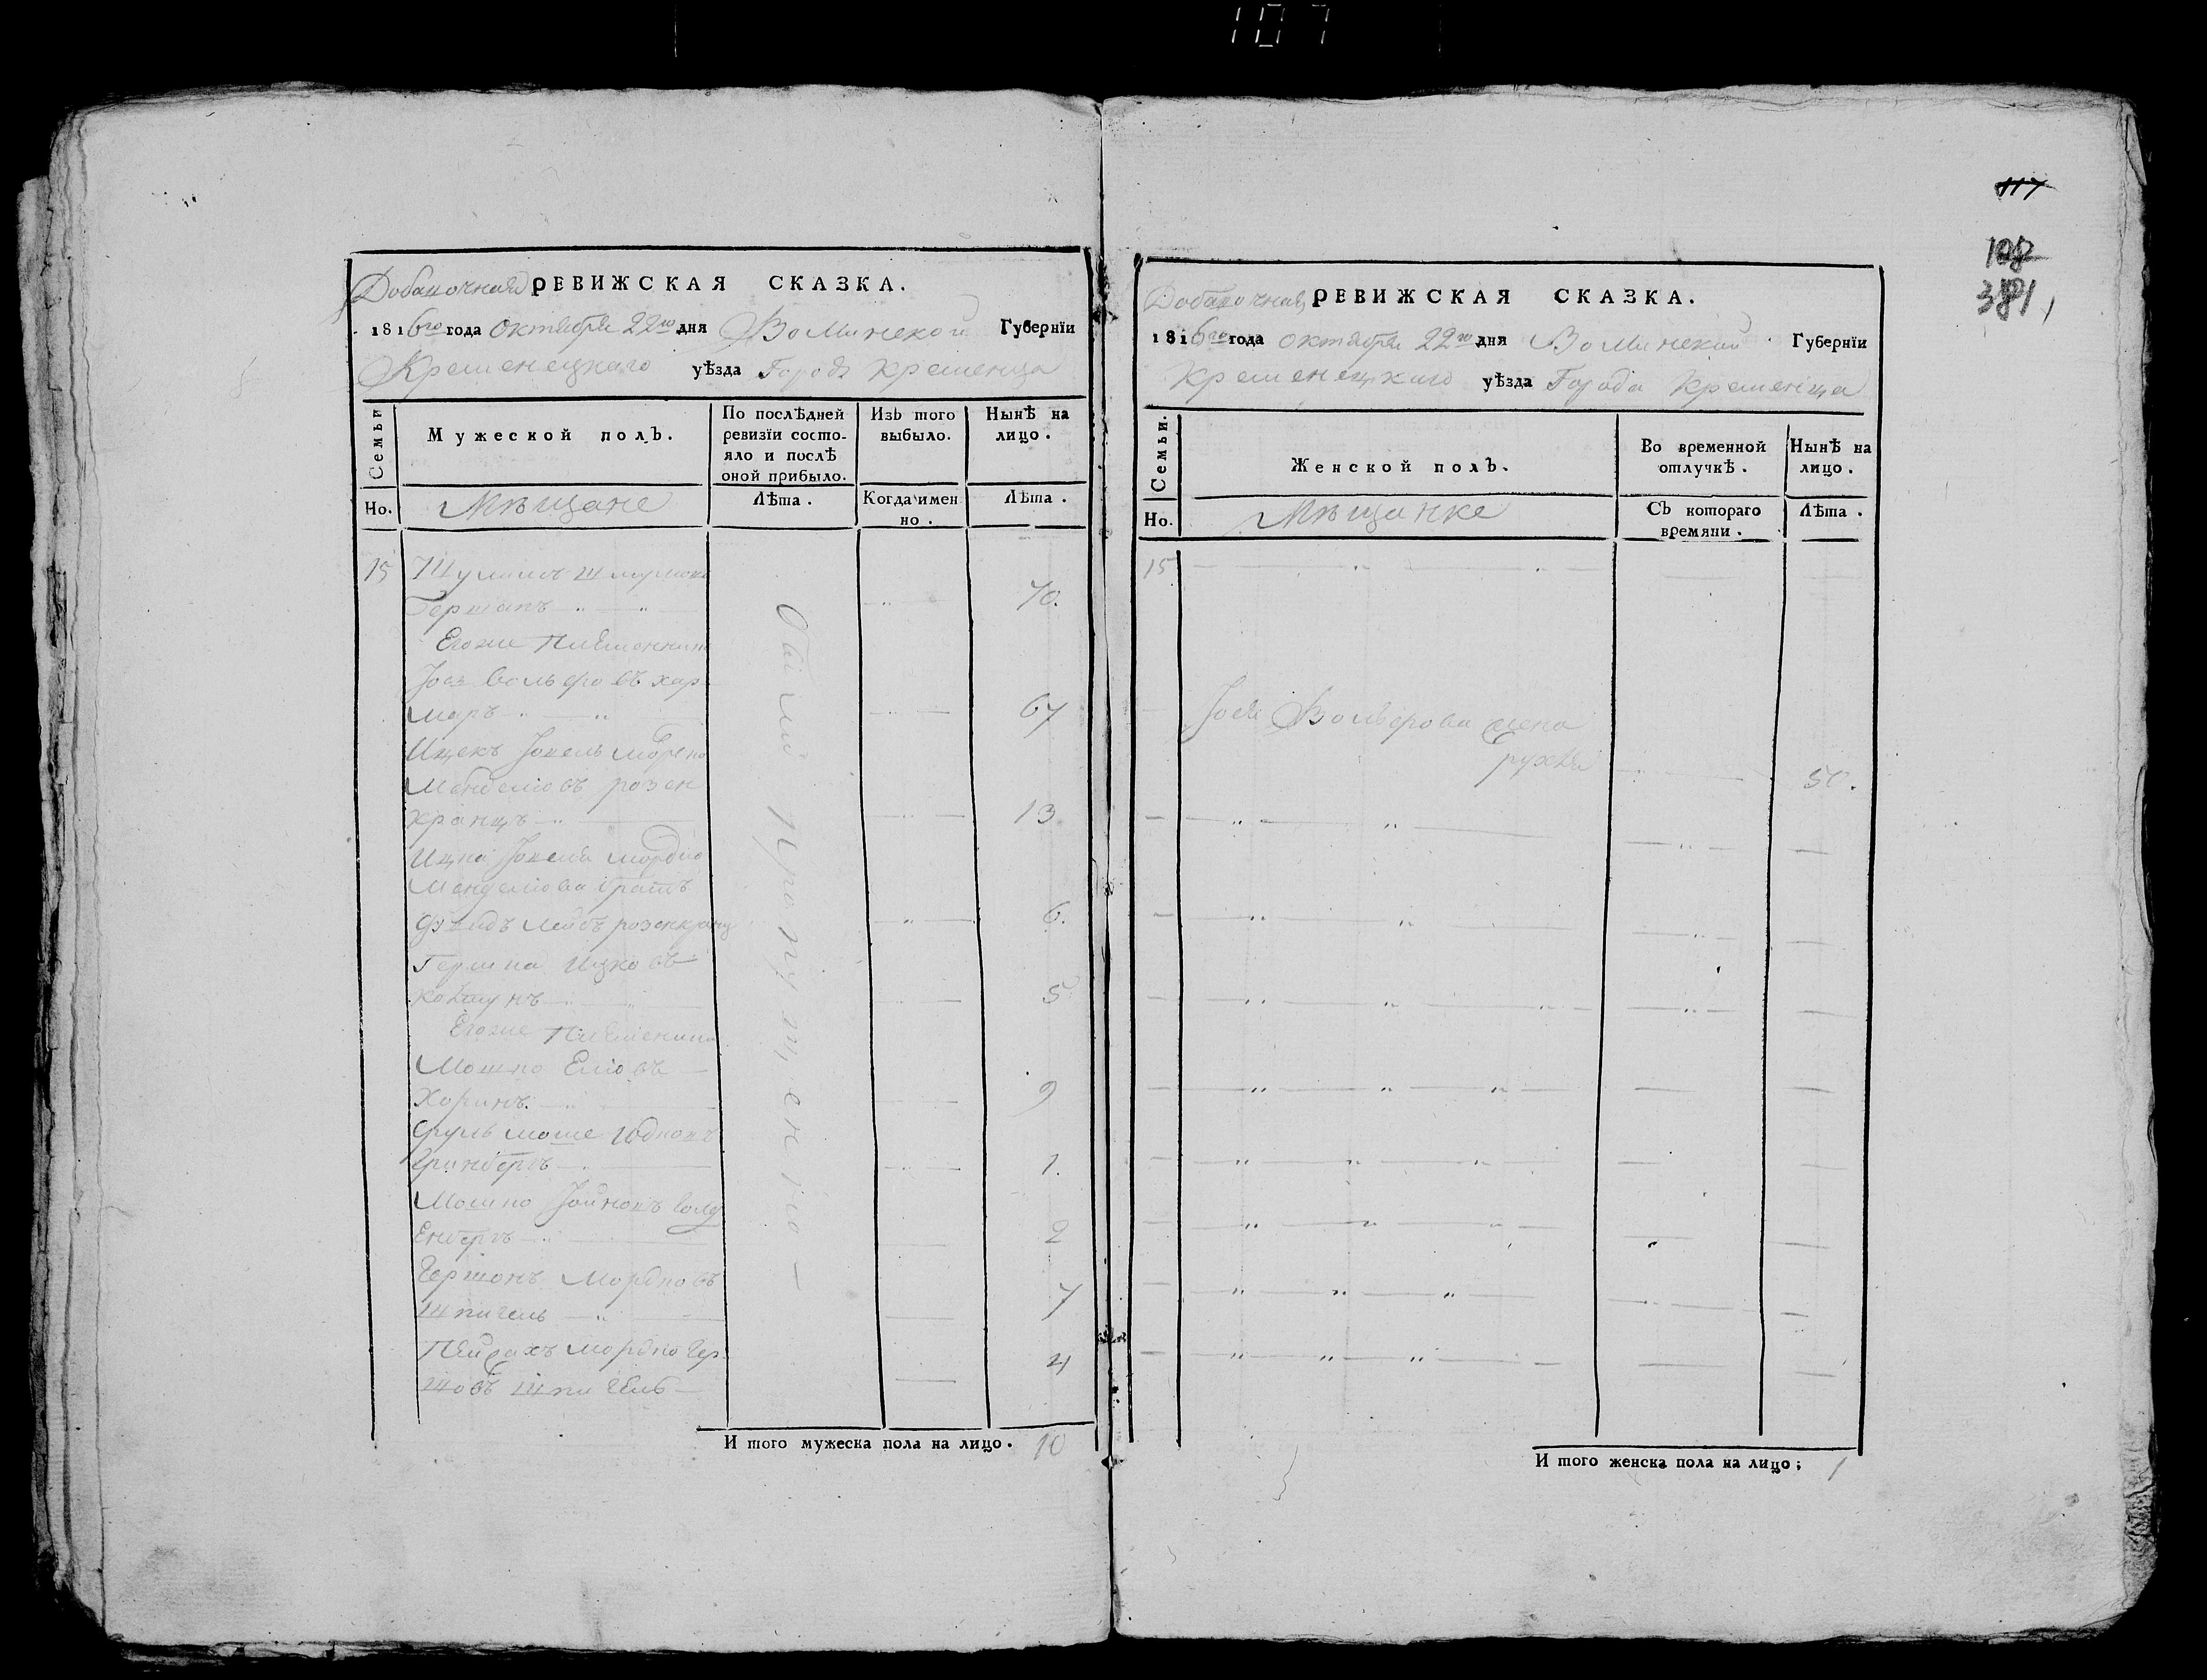 107
117
108
381
Добавочная РЕВИЖСКАЯ СКАЗКА.
1816го года октября 22го дня Волынской Губернїи
Кременецкаго уѣзда Города Кременца
Семьи
Мужеской полъ.
По послѣдней ревизїи состояло и послѣ оной прибыло.
Изъ того выбыло.
Нынѣ на лицо.
Но.
Мѣщане
Лѣта.
Когда имен но.
Лѣта.
15
Гершанъ 70.
Егоже племянники
Іось Вольфовъ хар
маръ 67
Ицекъ Іокель Мордко
Менделіовъ розен
кранцъ 13
Ицка Іокеля Мордко
Менделіова братъ
Лейбъ розенкранц 6.
Гершка Ицковъ
5
Егоже племянникъ
Мошко Еліовъ
Хоринъ. 9
Сруль Моше
Гринбергъ 1.
Мошко голд
Енбергъ 2
Гершонъ Мордковъ
Шпигель 7
Пейсахъ Мордко Гер
шовъ Шпигель 4
Были пропущены
И того мужеска пола на лицо. 10
Добавочная РЕВИЖСКАЯ СКАЗКА.
1816го года октября 22го дня Волынской Губернїи
Кременецкаго уѣзда Города Кременца
Семьи.
Женской полъ.
Во временной отлучкѣ.
Нынѣ на лицо.
Но.
Мѣщанке
Съ котораго времяни.
Лѣта.
15
Іося Вольфова жена
Рухля 50.
И того женска пола на лицо; 1